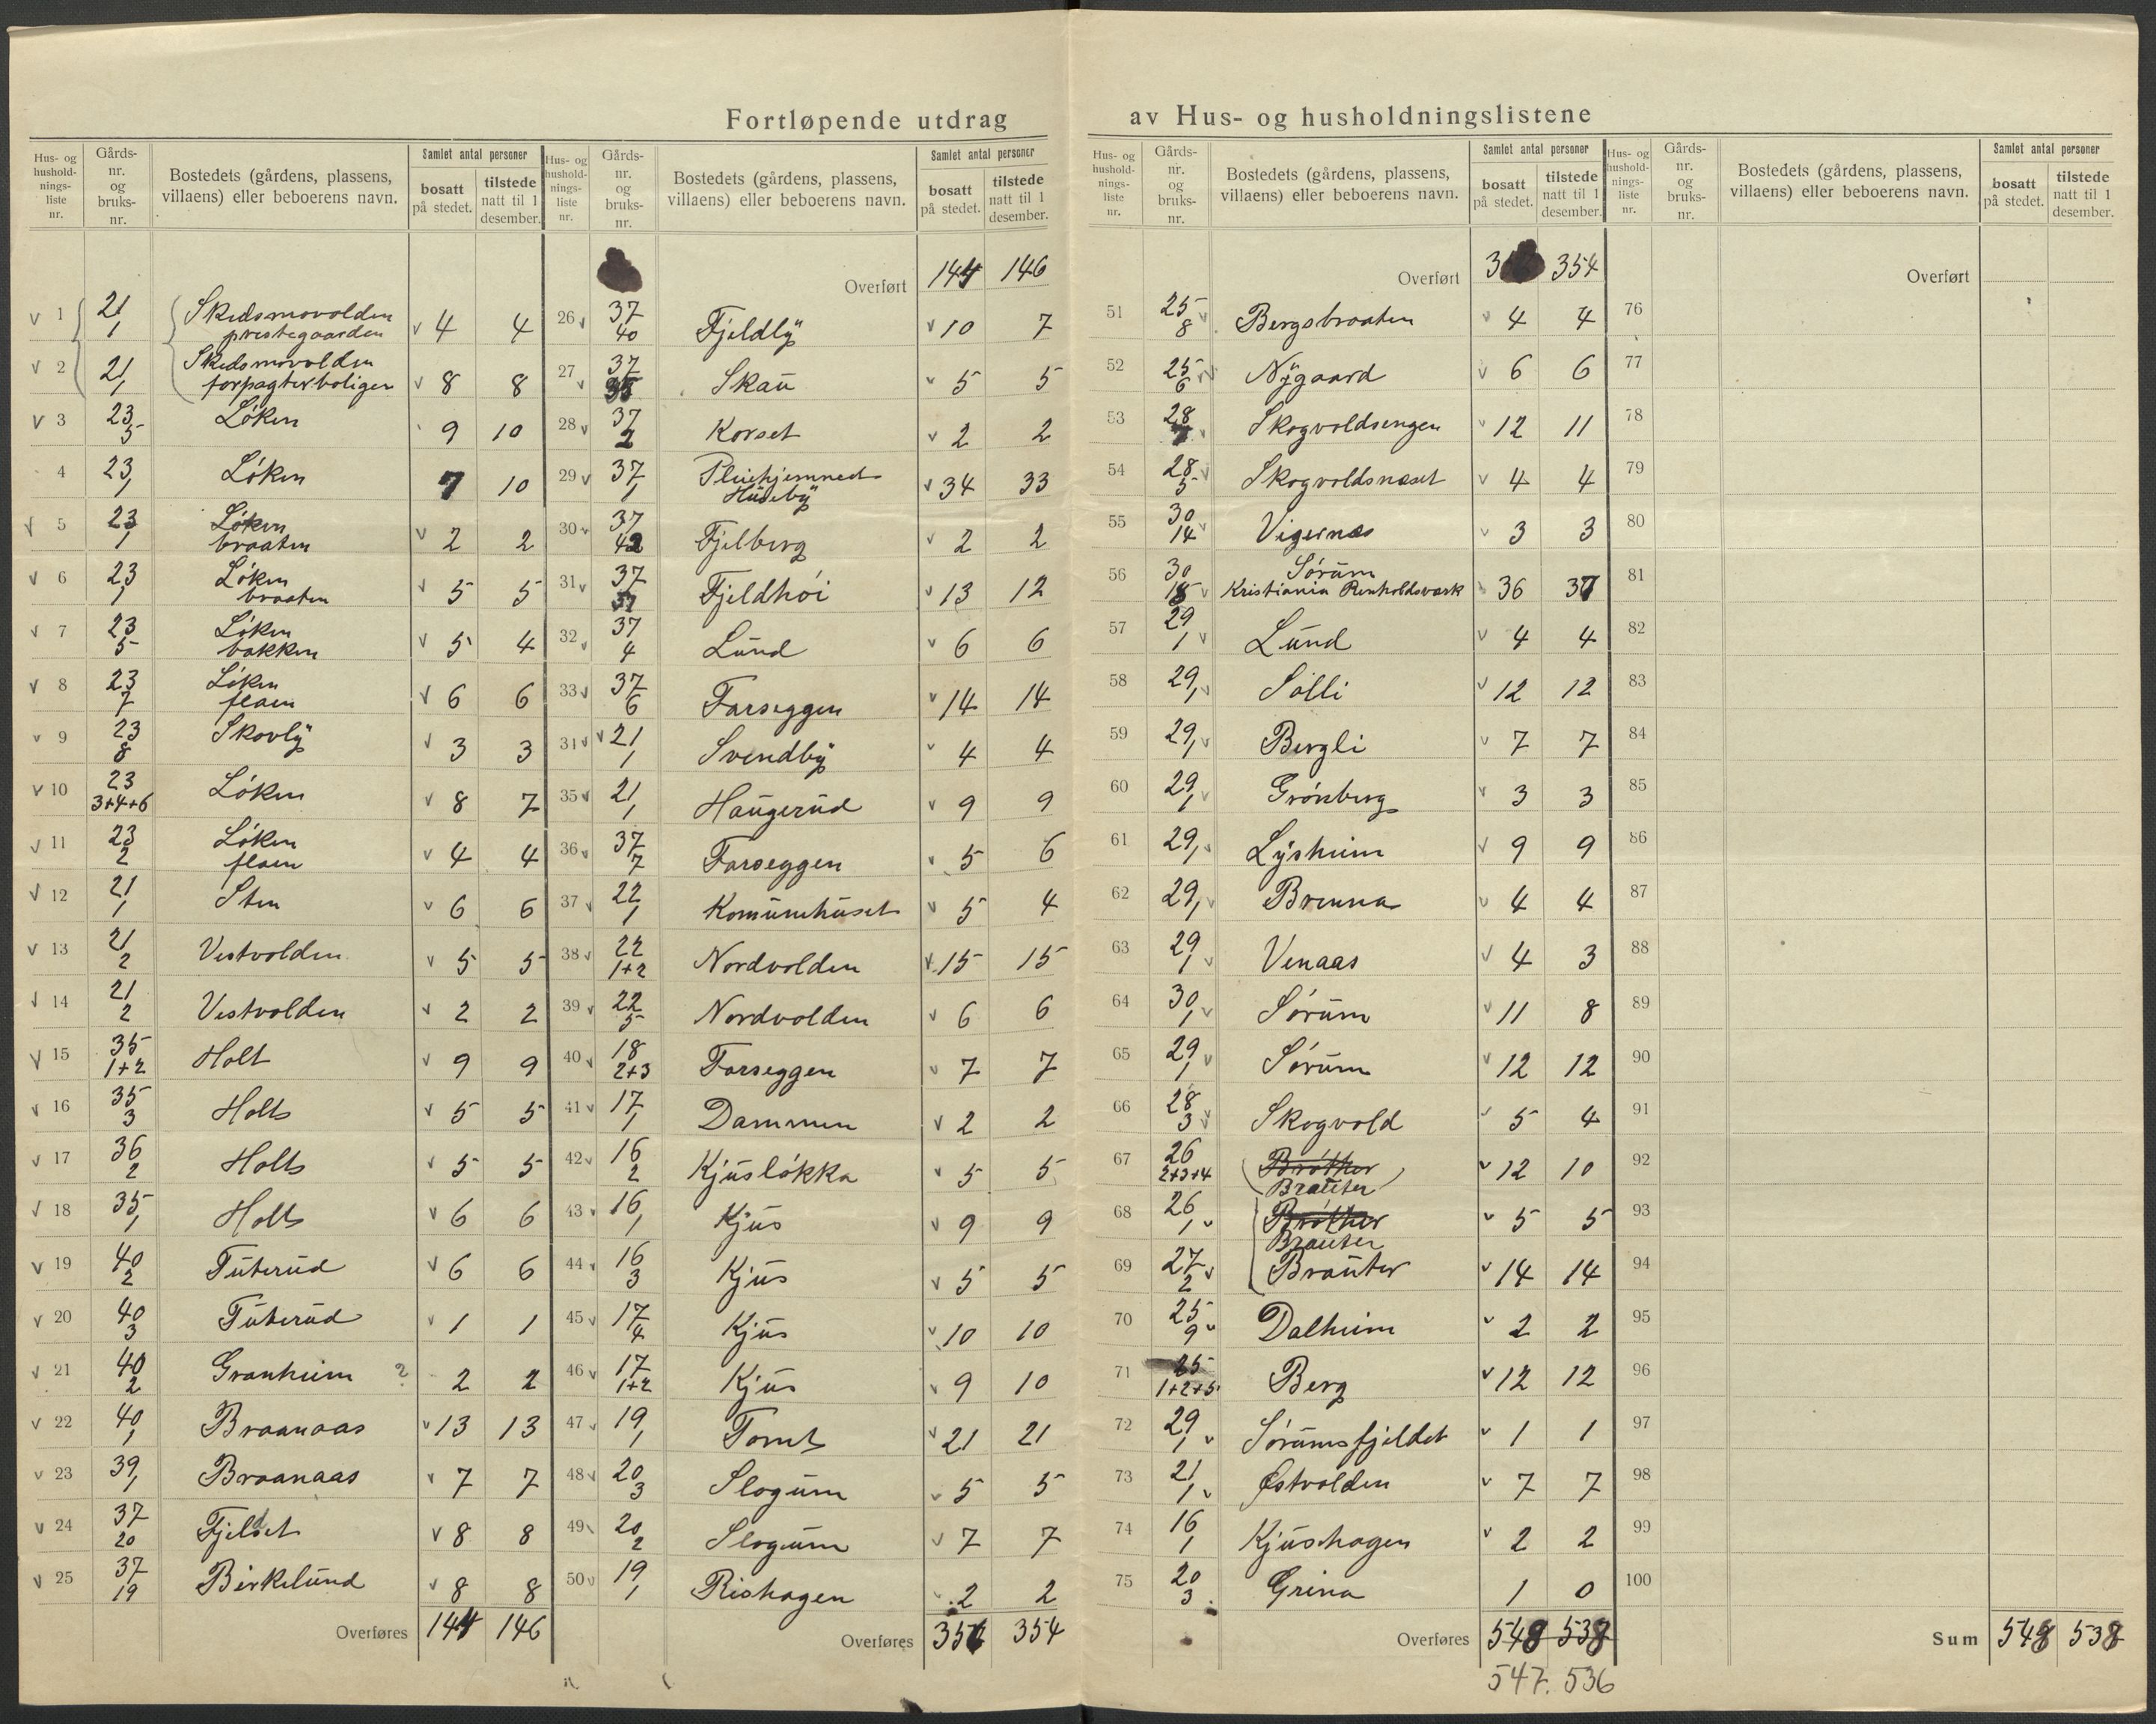 Fortløpende utdrag av Hus- og husholdningslistene
Hus- og husholdnings-liste nr. | Gårds-nr. og bruks-nr. | Bostedets (gårdens, plassens, villaens) eller beboerens navn. | Samlet antal personer | bosatt på stedet. | tilstede natt til 1 desember.
v 1 21/1 Skedsmovolden prestegaarden v 4 4
v 2 21/1 Skedsmovolden forpagterboligen v 8 8
v 3 23/5 Løken 9 10
4 23/1 Løken 7 10
v 5 23/1 Løken braaten v 2 2
v 6 23/1 Løken braaten v 5 5
v 7 23/5 Løken bakken v 5 4
v 8 23/7 Løken flaen v 6 6
v 9 23/8 Skovly v 3 3
v 10 23/3+4+6 Løken v 8 7
v 11 23/2 Løken flaen v 4 4
v 12 21/1 Sten v 6 6
v 13 21/2 Vestvolden v 5 5
v 14 21/2 Vestvolden v 2 2
v 15 35/1+2 Holt v 9 9
v 16 35/3 Holt v 5 5
v 17 36/2 Holt v 5 5
v 18 35/1 Holt v 6 6
v 19 40/2 Tuterud v 6 6
v 20 40/3 Tuterud v 1 1
v 21 40/2 Granheim ? 2 2
v 22 40/1 Braanaas v 13 13
v 23 39/1 Braanaas v 7 7
v 24 37/20 Fjeldset v 8 8
v 25 37/19 Birkelund v 8 8
Overføres 144 146
Hus- og husholdnings-liste nr. | Gårds-nr. og bruks-nr. | Bostedets (gårdens, plassens, villaens) eller beboerens navn. | Samlet antal personer | bosatt på stedet. | tilstede natt til 1 desember.
Overført 144 146
26 v 37/40 Fjeldly v 10 7
27 v 37/35 Skau v 5 5
28 v 37/2 Korset v 2 2
29 v 37/1 Pleiehjemmet Huseby v 34 33
30 v 37/42 Fjelberg v 2 2
31 v 37/37 Fjeldhøi v 13 12
32 v 37/4 Lund v 6 6
33 v 37/6 Farseggen v 14 14
31 v v 21/1 Svendby v 4 4
35 v 21/1 Haugerud v 9 9
36 v 37/7 Farseggen v 5 6
37 v 22/1 Komunehuset v 5 4
38 v 22/1+2 Nordvolden v 15 15
39 v 22/5 Nordvolden v 6 6
40 v 18/2+3 Farseggen v 7 7
41 v 17/1 Dammen v 2 2
42 v 16/2 Kjusløkka v 5 5
43 v 16/1 Kjus v 9 9
44 v 16/3 Kjus v 5 5
45 v 17/4 Kjus v 10 10
46 v 17/1+2 Kjus v 9 10
47 v 19/1 Tomt v 21 21
48 v 20/3 Slogum v 5 5
49 v 20/2 Slogum v 7 7
50 v 19/1 Rishagen v 2 2
Overføres 356 354
Hus- og husholdnings-liste nr. | Gårds-nr. og bruks-nr. | Bostedets (gårdens, plassens, villaens) eller beboerens navn. | Samlet antal personer | bosatt på stedet. | tilstede natt til 1 desember.
Overført 3 354
51 25/8 v Bergsbraaten v 4 4
52 25/6 v Nygaard v 6 6
53 28 v Skogvoldsengen v 12 11
54 28/5 v Skogvoldsnæset v 4 4
55 30/14 v Vigernæs v 3 3
56 30/15 v Sørum Kristiania Renholdsværk v 36 37
57 29/1 v Lund v 4 4
58 29/1 v Solli v 12 12
59 29/1 v Bergli v 7 7
60 29/1 v Grønberg v 3 3
61 29/1 v Lysheim v 9 9
62 29/1 v Brenna v 4 4
63 29/1 v Venaas v 4 3
64 30/1 v Sørum v 11 8
65 29/1 v Sørum v 12 12
66 28/3 v Skogvold v 5 4
67 26/2+3+4 Brøther Brauter v 12 10
68 26/1 v Brøther Brauter v 5 5
69 27/2 v Brauter v 14 14
70 25/9 v Dalheim v 2 2
71 25/1+2+5 Berg v 12 12
72 29/1 v Sørumsfjeldet v 1 1
73 21/1 v Østvolden v 7 7
74 16/1 Kjushagen v 2 2
75 20/3 Grina 1 0
Overføres 548 538
547. 536
Hus- og husholdnings-liste nr. | Gårds-nr. og bruks-nr. | Bostedets (gårdens, plassens, villaens) eller beboerens navn. | Samlet antal personer | bosatt på stedet. | tilstede natt til 1 desember.
Overført
76
77
78
79
80
81
82
83
84
85
86
87
88
89
90
91
92
93
94
95
96
97
98
99
100
Sum 548 538